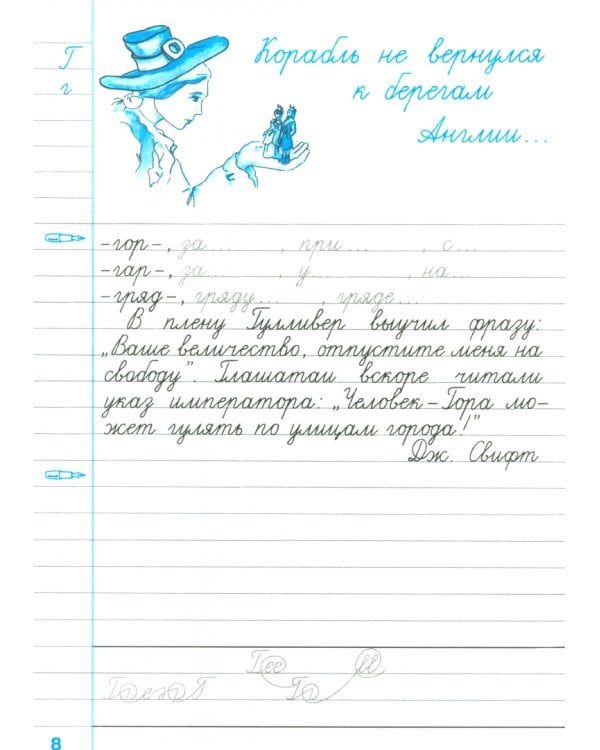 Г
г
Корабль не вернулся
к берегам
Англии...
-гор-, за... , при... , с...
-гар-, за... , у... , на...
-гряд-, гряду... , гряде...
В плену Гулливер выучил фразу:
„Ваше величество, отпустите меня на
свободу”. Глашатаи вскоре читали
указ императора: „Человек-Гора мо-
жет гулять по улицам города!”
Дж. Свифт
8